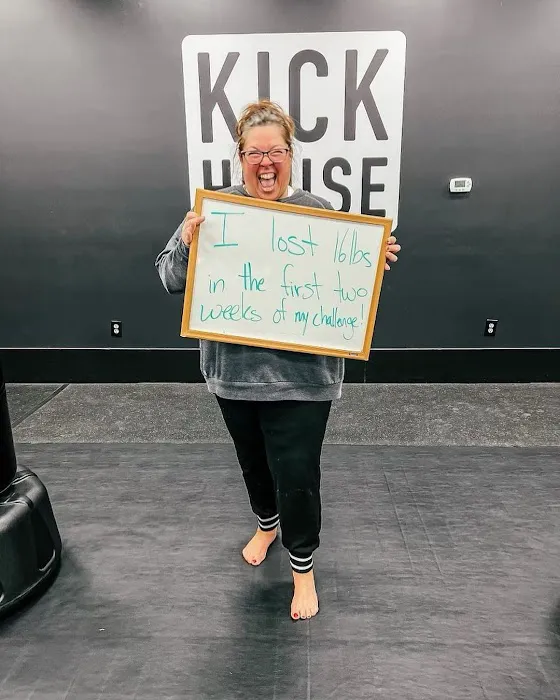 KICK
HOUSE
I lost 16lbs
in the first two
weeks of my challenge!